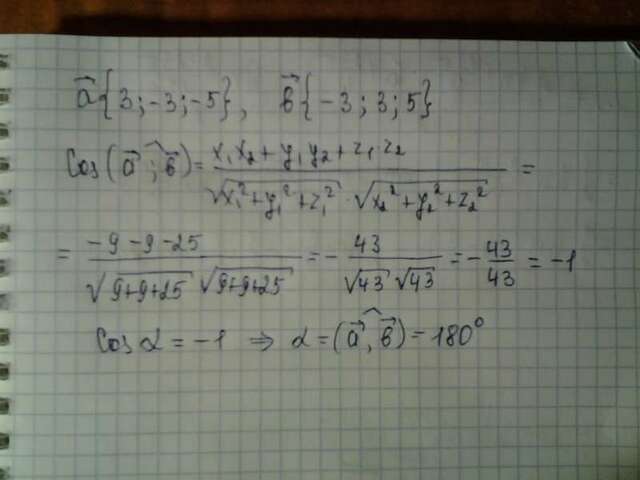 a⃗{3;-3;-5}, b⃗{-3;3;5}
Cos(a⃗ ; b⃗) = (x₁x₂ + y₁y₂ + z₁z₂) / (√(x₁² + y₁² + z₁²) · √(x₂² + y₂² + z₂²)) =
= (-9 -9 -25) / (√(9+9+25) √(9+9+25)) = - 43 / (√43 √43) = - 43/43 = -1
Cos α = -1 ⇒ α = (a⃗, b⃗) = 180°